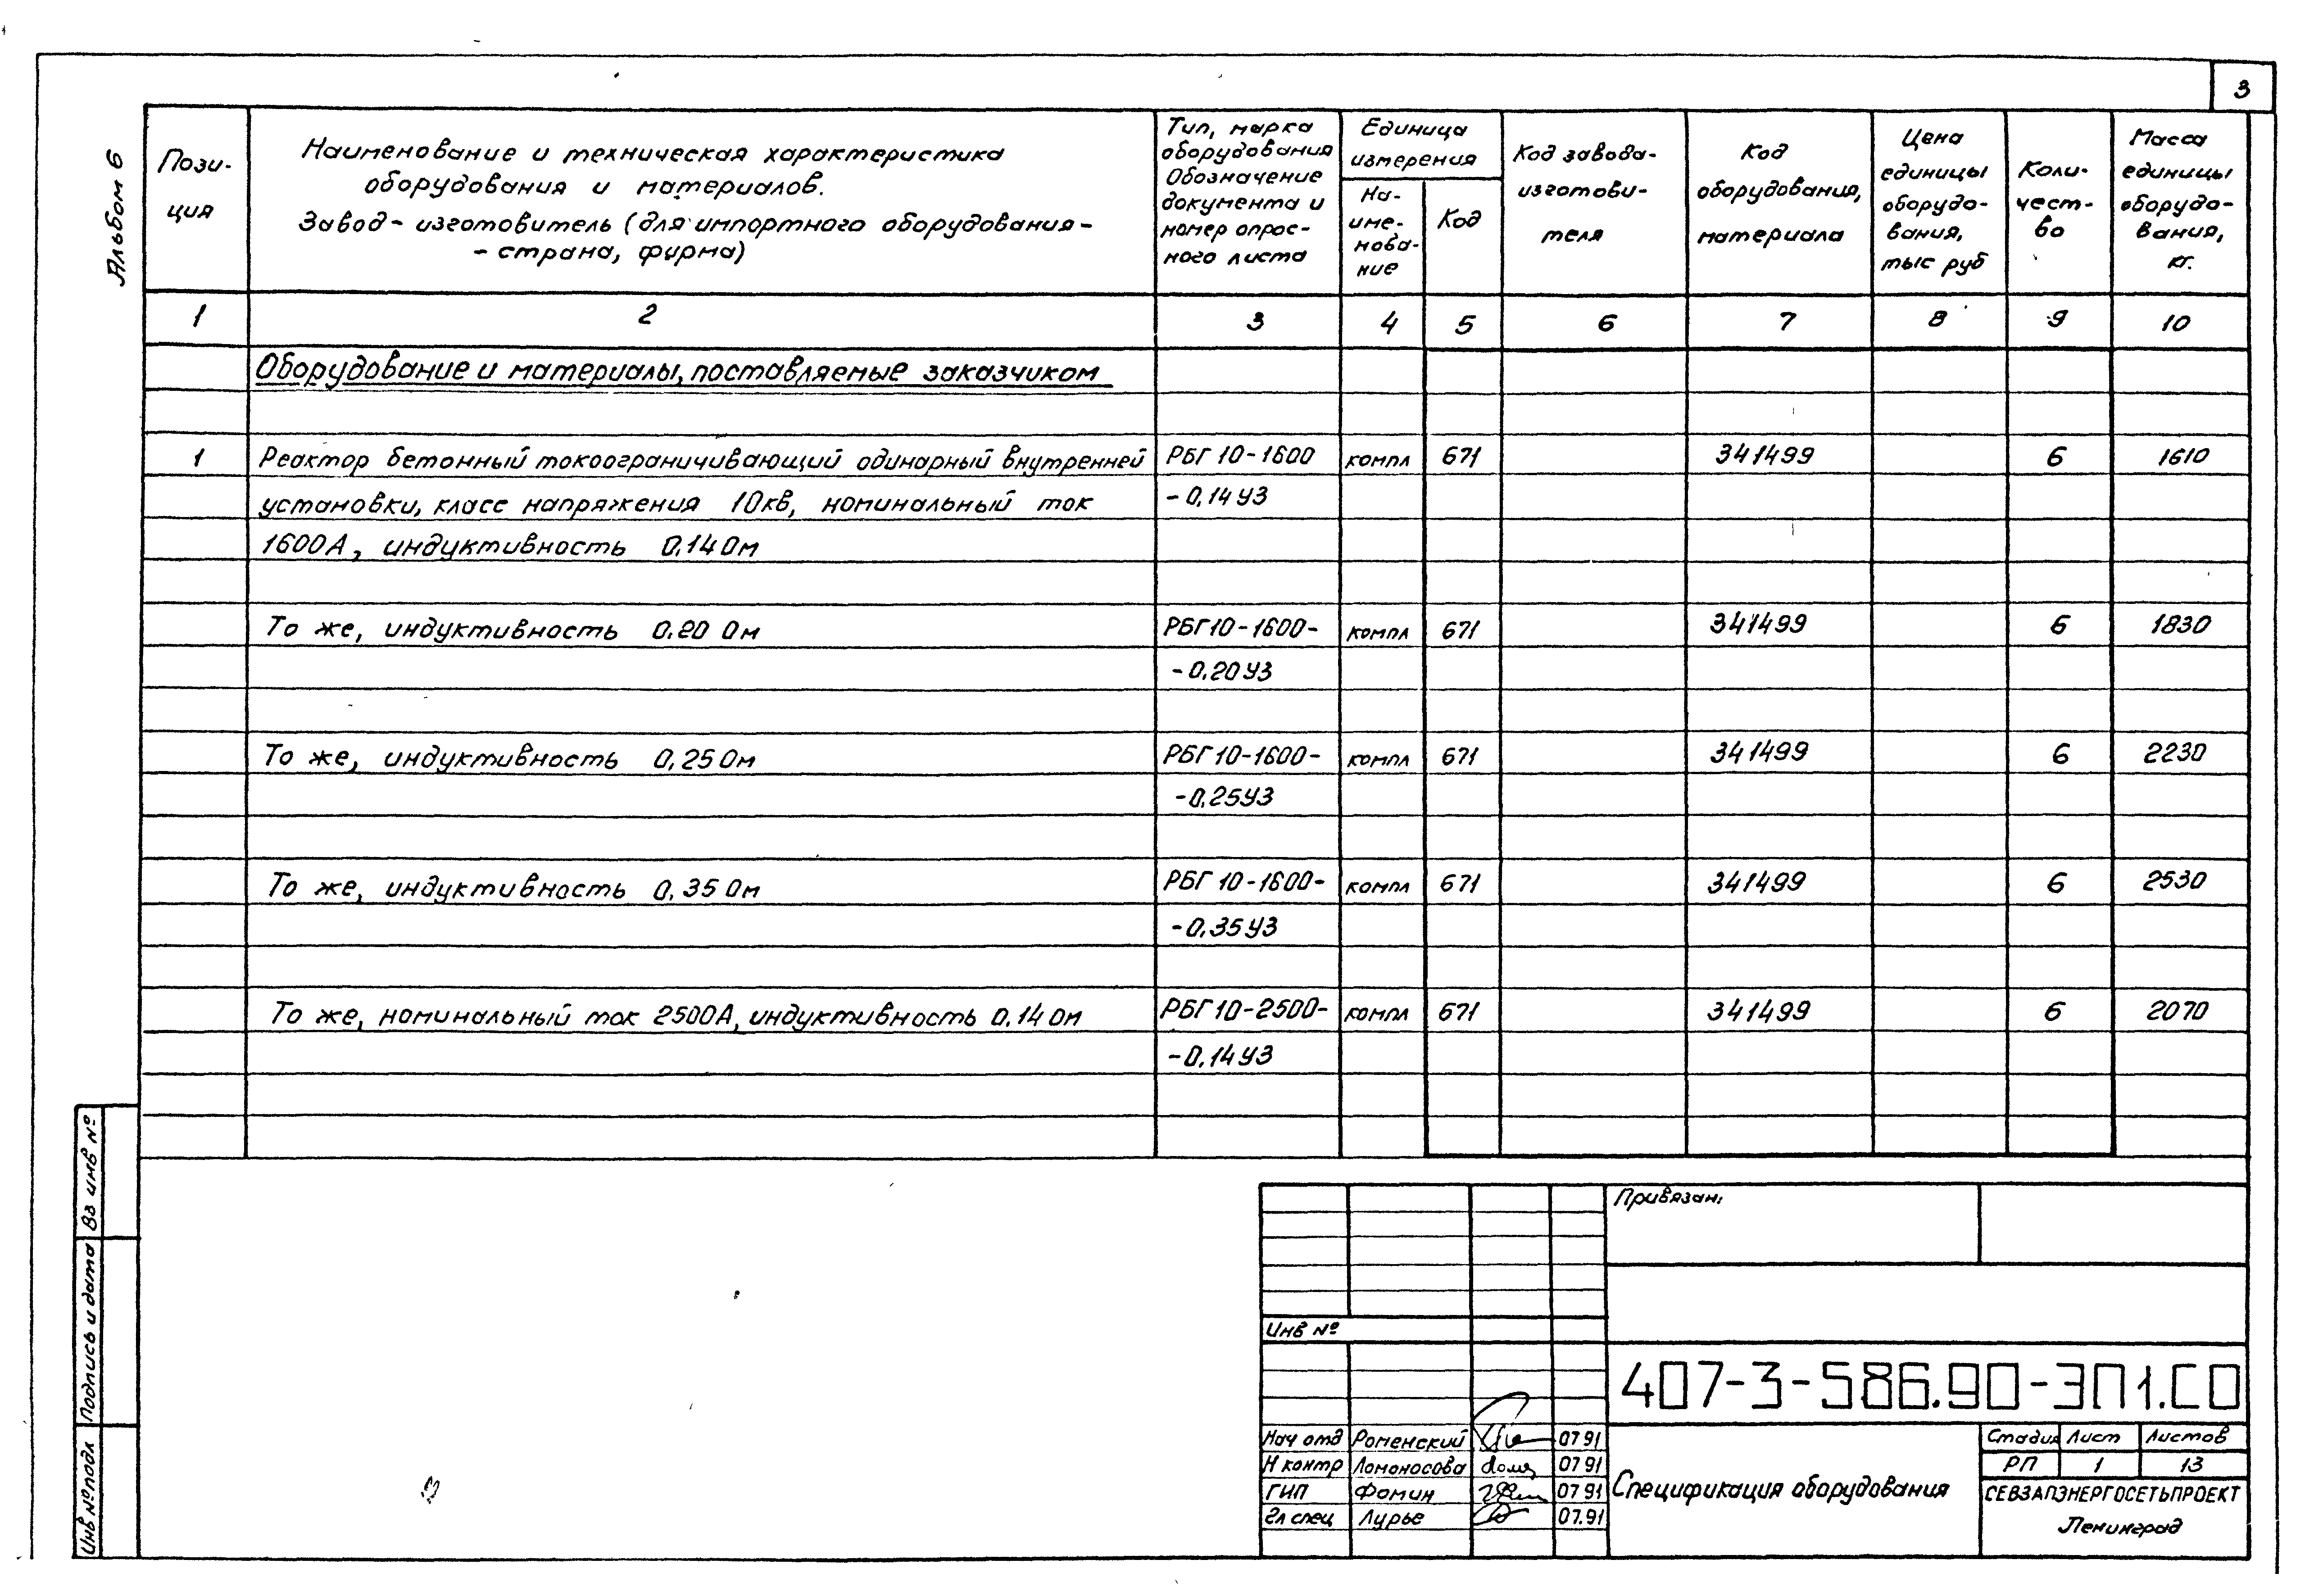 3
Альбом 6
Пози-
ция
Наименование и техническая характеристика
оборудования и материалов.
Завод-изготовитель (для импортного оборудования-
- страна, фирма)
Тип, марка
оборудования
Обозначение
документа и
номер опрос-
ного листа
Единица
измерения
На-
име-
нова-
ние
Код
Код завода-
изготови-
теля
Код
оборудования,
материала
Цена
единицы
оборудо-
вания,
тыс руб
Коли-
чест-
во
Масса
единицы
оборудо-
вания,
кг.
1 2 3 4 5 6 7 8 9 10
Оборудование и материалы, поставляемые заказчиком
1 Реактор бетонный токоограничивающий одинарный внутренней РБГ 10-1600 компл 671 341499 6 1610
установки, класс напряжения 10кв, номинальный ток -0,14У3
1600А, индуктивность 0,14 Ом
То же, индуктивность 0,20 Ом РБГ10-1600- компл 671 341499 6 1830
-0,20У3
То же, индуктивность 0,25 Ом РБГ10-1600- компл 671 341499 6 2230
-0,25У3
То же, индуктивность 0,35 Ом РБГ10-1600- компл 671 341499 6 2530
-0,35У3
То же, номинальный ток 2500А, индуктивность 0,14 Ом РБГ10-2500- компл 671 341499 6 2070
-0,14У3
Вз инв №
Подпись и дата
Инв № подл
Привязан:
Инв №
407-3-586.90-ЭП1.СО
Нач отд Роменский 07 91
Н контр Ломоносова 07 91
ГИП Фомин 07 91
Гл спец Лурье 07.91
Спецификация оборудования
Стадия Лист Листов
РП 1 13
СЕВЗАПЭНЕРГОСЕТЬПРОЕКТ
Ленинград